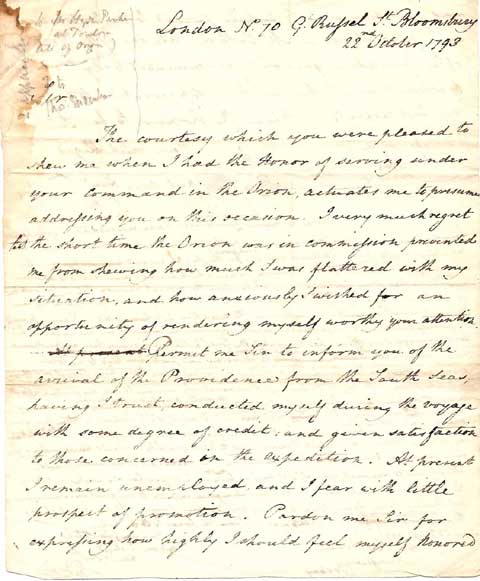 London No. 70 G. Russel St. Bloomsbury
22nd October 1793
Sir Hyde Parker
at Toulon
late of Orion
Sir
The courtesy which you were pleased to
shew me when I had the Honor of serving under
your command in the Orion, actuates me to presume
addressing you on this occasion. I very much regret
that the short time the Orion was in commission prevented
me from shewing how much I was flattered with my
situation, and how anxiously I wished for an
opportunity of rendering myself worthy your attention.
At present Permit me Sir to inform you of the
arrival of the Providence from the South Seas,
having I trust, conducted myself during the voyage
with some degree of credit; and given satisfaction
to those concerned in the expedition. At present
I remain unemployed, and I fear with little
prospect of promotion. Pardon me Sir for
expressing how highly I should feel myself Honored